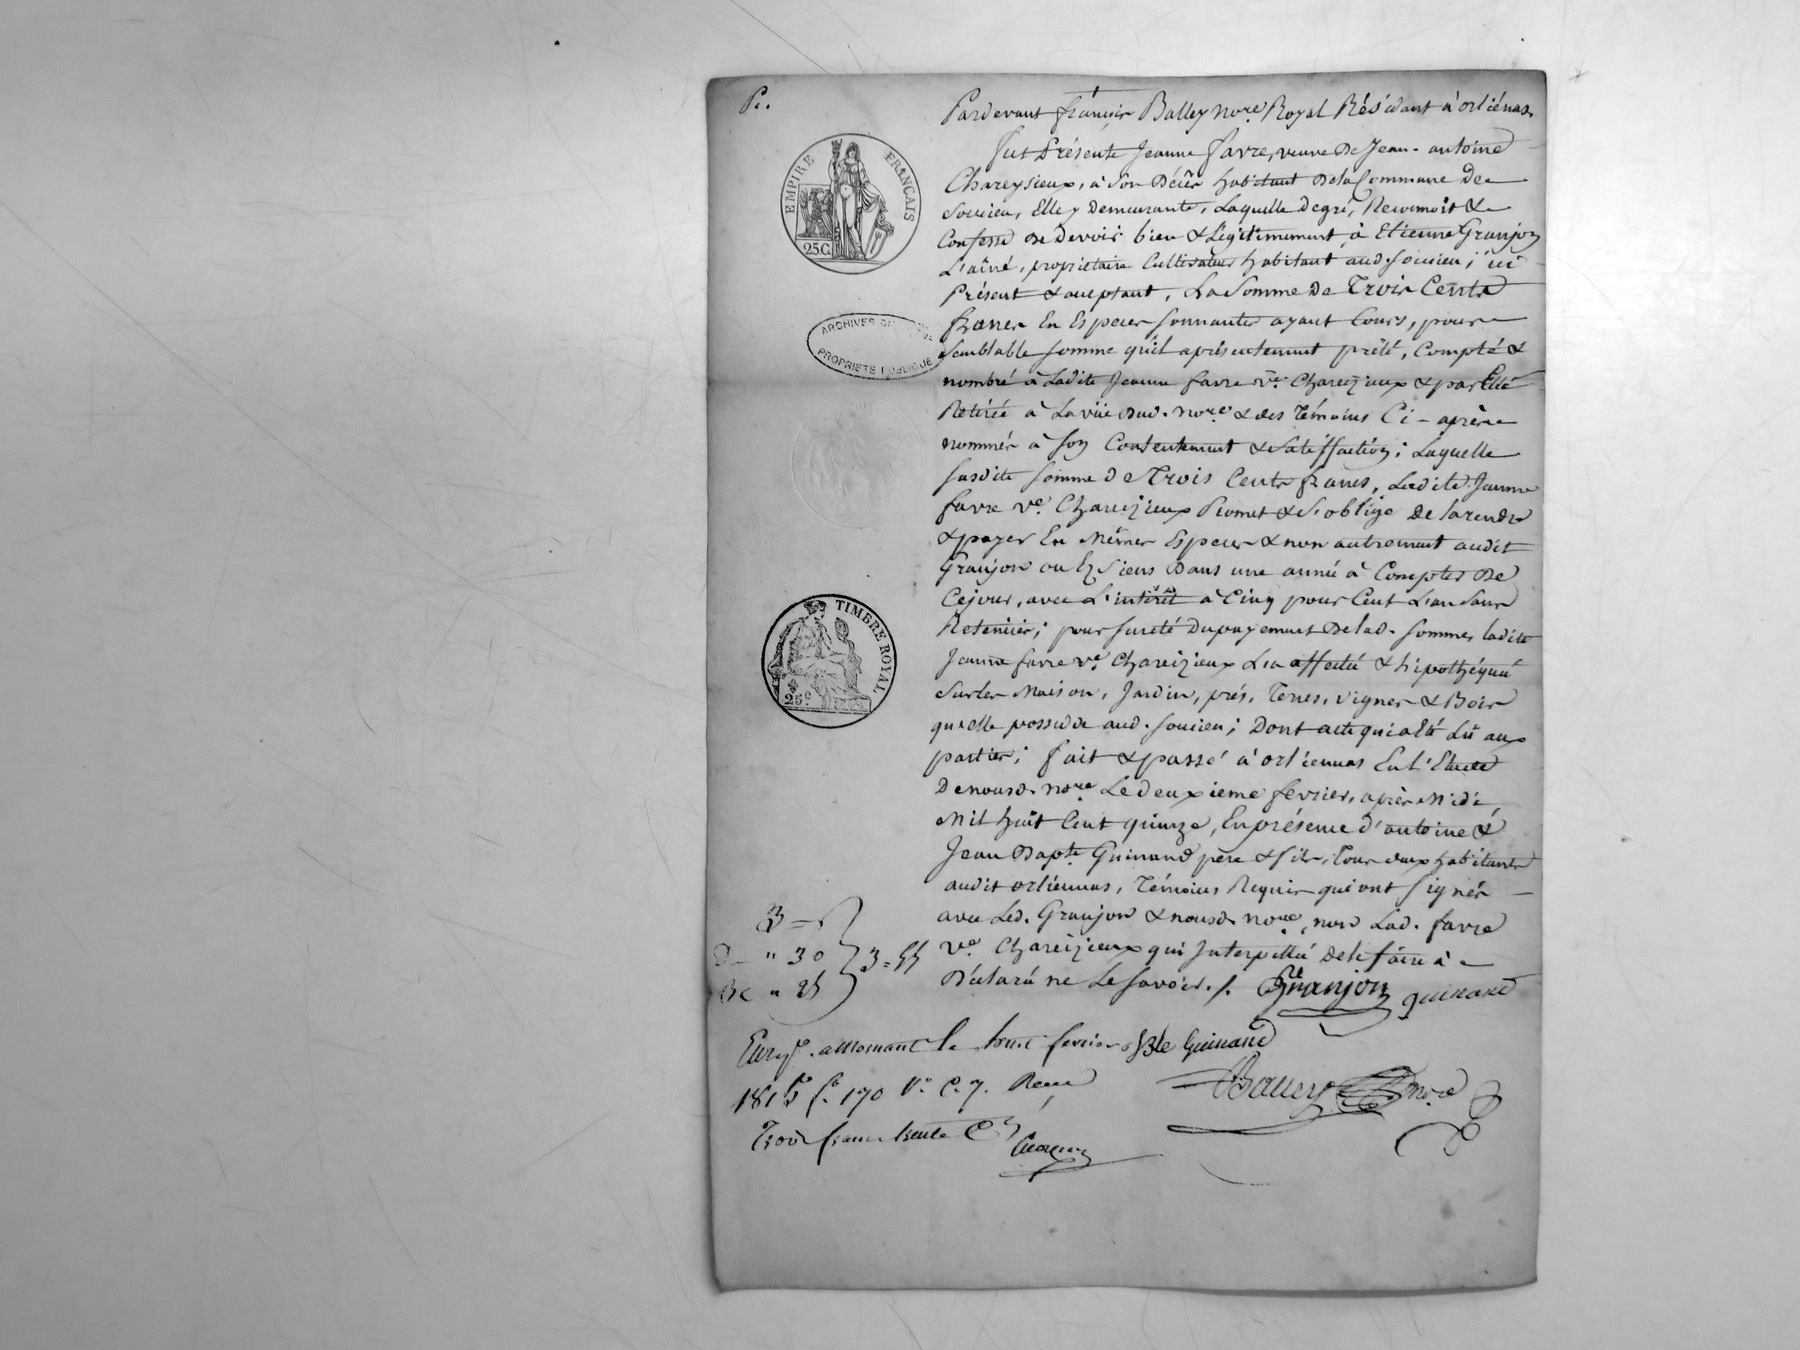 Pe.
Pardevant françois Balley no.re Royal Résidant à orliénas.
EMPIRE FRANÇAIS
25 C.
fut Présente Jeanne favre, veuve De Jean-antoine
Chareysieux, à Son Décès habitant Dela Commune De
Soucieu, Elle y Demeurante, Laquelle De gré, Reconnoit &
Confesse De Devoir bien & Légitimement, à Etienne Granjon
L'aîné, propriétaire Cultivateur habitant aud. Soucieu, ici
Présent & acceptant, La Somme De Trois Cents
francs En Especes Sonnantes ayant Cours, pour
ARCHIVES
PROPRIETE PUBLIQUE
Semblable Somme qu'il a présentement prêté, Compté &
nombré à Ladite Jeanne favre v.e Chareizieux & par Elle
Retirée à La vüe Dud. no.re & des Témoins Ci-après
nommés à Son Contentement & Satisfaction; Laquelle
Susdite Somme De Trois Cents francs, Ladite Jeanne
favre v.e Chareizieux Promet & S'oblige De La rendre
& payer En Mêmes Especes & non autrement audit
Granjon ou Ez Siens Dans une année à Compter De
Ce jour, avec L'intérêt à Cinq pour Cent L'an Sans
Retenües; pour Sureté Du payement De lad. Somme, ladite
Jeanne favre v.e Chareizieux L'a affecté & hipothéqué
TIMBRE ROYAL
25 c.
Sur les Maison, Jardin, prés, Terres, vignes & Bois
qu'elle possede aud. Soucieu; Dont acte qui a Eté Lû aux
parties; fait & passé à orliennas En L'Etude
De nousd. no.re Le deuxieme février, après Midi,
Mil huit Cent quinze, En présence d'antoine &
Jean Bapt.te Guinand père & fils, Tous deux habitants
audit orliennas, Témoins Requis qui ont Signés
avec Led. Granjon & nousd. no.re, non Lad. favre
v.e Chareizieux qui Interpellée De le faire a
Déclaré ne Le Savoir./.
3 =
D " 30
" 25
3 = 55
Granjon guinand
Enreg.é à Mornant le huit fevrier
Bte Guinand
1815 f.o 170 V.o C. 7. Reçu
Balley no.re
Trois francs trente C.